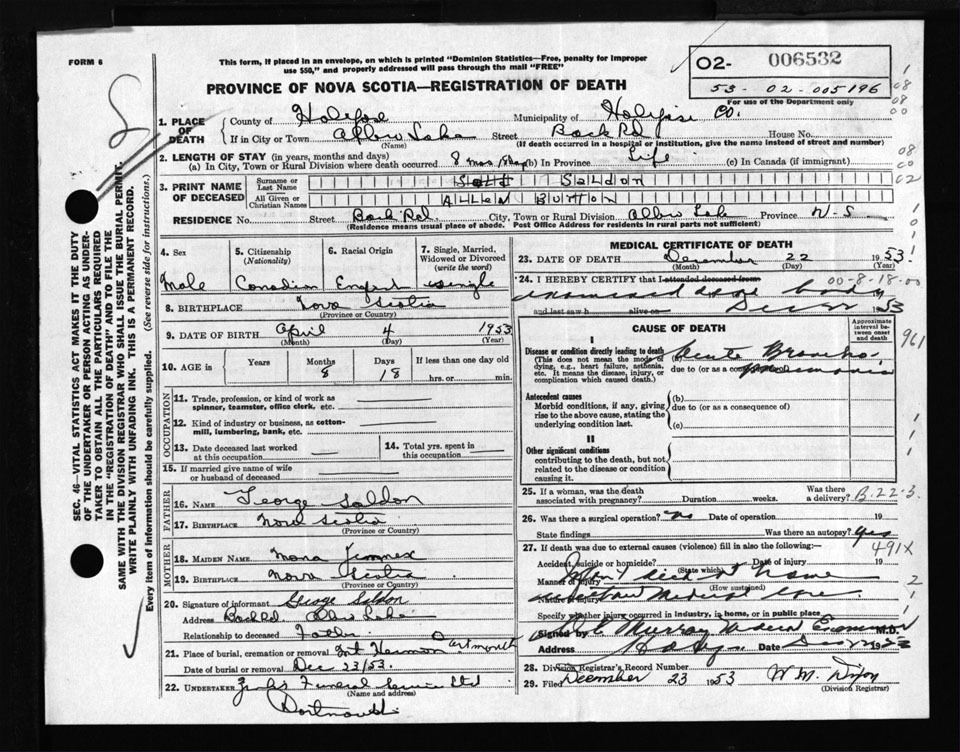 FORM 6
This form, if placed in an envelope, on which is printed "Dominion Statistics—Free, penalty for improper
use $50," and properly addressed will pass through the mail "FREE"
02- 006532
53-02-005196
For use of the Department only
PROVINCE OF NOVA SCOTIA—REGISTRATION OF DEATH
1. PLACE OF DEATH
County of Halifax Municipality of Halifax Co.
If in City or Town Albro Lake Street Back Rd House No.
(Name) (If death occurred in a hospital or institution, give the name instead of street and number)
2. LENGTH OF STAY (in years, months and days)
(a) In City, Town or Rural Division where death occurred 8 mos 18 days (b) In Province Life (c) In Canada (if immigrant)
3. PRINT NAME OF DECEASED
Surname or Last Name SELDON
All Given or Christian Names ALLEN BURTON
RESIDENCE No. Street Back Rd City, Town or Rural Division Albro Lake Province N-S
(Residence means usual place of abode. Post Office Address for residents in rural parts not sufficient)
4. Sex
5. Citizenship (Nationality)
6. Racial Origin
7. Single, Married, Widowed or Divorced (write the word)
Male Canadian English single
8. BIRTHPLACE Nova Scotia
(Province or Country)
9. DATE OF BIRTH April 4 1953
(Month) (Day) (Year)
10. AGE in Years Months Days If less than one day old
8 18 hrs. or min.
OCCUPATION
11. Trade, profession, or kind of work as spinner, teamster, office clerk, etc.
12. Kind of industry or business, as cotton-mill, lumbering, bank, etc.
13. Date deceased last worked at this occupation
14. Total yrs. spent in this occupation
15. If married give name of wife or husband of deceased
FATHER
16. NAME George Seldon
17. BIRTHPLACE Nova Scotia
(Province or Country)
MOTHER
18. MAIDEN NAME Mona
19. BIRTHPLACE Nova Scotia
(Province or Country)
20. Signature of informant George Seldon
Address Back Rd. Albro Lake
Relationship to deceased Father
21. Place of burial, cremation or removal Mt Hermon Dartmouth
Date of burial or removal Dec 23/53.
22. UNDERTAKER Funeral Service Ltd
(Name and address)
Dartmouth
MEDICAL CERTIFICATE OF DEATH
23. DATE OF DEATH December 22 1953
(Month) (Day) (Year)
24. I HEREBY CERTIFY that I attended deceased from 00-8-18-00
examined above body
and last saw h alive on Dec 22 1953
CAUSE OF DEATH
Approximate interval between onset and death
I
Disease or condition directly leading to death
(This does not mean the mode of dying, e.g., heart failure, asthenia, etc. It means the disease, injury, or complication which caused death.)
(a) Acute Broncho-
due to (or as a consequence of) pneumonia
Antecedent causes
Morbid conditions, if any, giving rise to the above cause, stating the underlying condition last.
(b)
due to (or as a consequence of)
(c)
II
Other significant conditions
contributing to the death, but not related to the disease or condition causing it.
25. If a woman, was the death associated with pregnancy? Duration weeks. Was there a delivery? B.22-3
26. Was there a surgical operation? No Date of operation 19
State findings Was there an autopsy? Yes
27. If death was due to external causes (violence) fill in also the following:— 491X
Accident, suicide or homicide? Date of injury 19
(State which)
Manner of injury died at home
(How sustained)
Nature of injury without Medical Care
Specify whether injury occurred in industry, in home, or in public place
Signed by Murray Medical Examiner M.D.
Address Date Dec 22 1953
28. Division Registrar's Record Number
29. Filed December 23 1953 W.M. Dixon
(Division Registrar)
SEC. 46—VITAL STATISTICS ACT MAKES IT THE DUTY
OF THE UNDERTAKER OR PERSON ACTING AS UNDER-
TAKER TO OBTAIN ALL THE PARTICULARS REQUIRED
IN THE "REGISTRATION OF DEATH" AND TO FILE THE
SAME WITH THE DIVISION REGISTRAR WHO SHALL ISSUE THE BURIAL PERMIT.
WRITE PLAINLY WITH UNFADING INK. THIS IS A PERMANENT RECORD.
Every item of information should be carefully supplied. (See reverse side for instructions.)